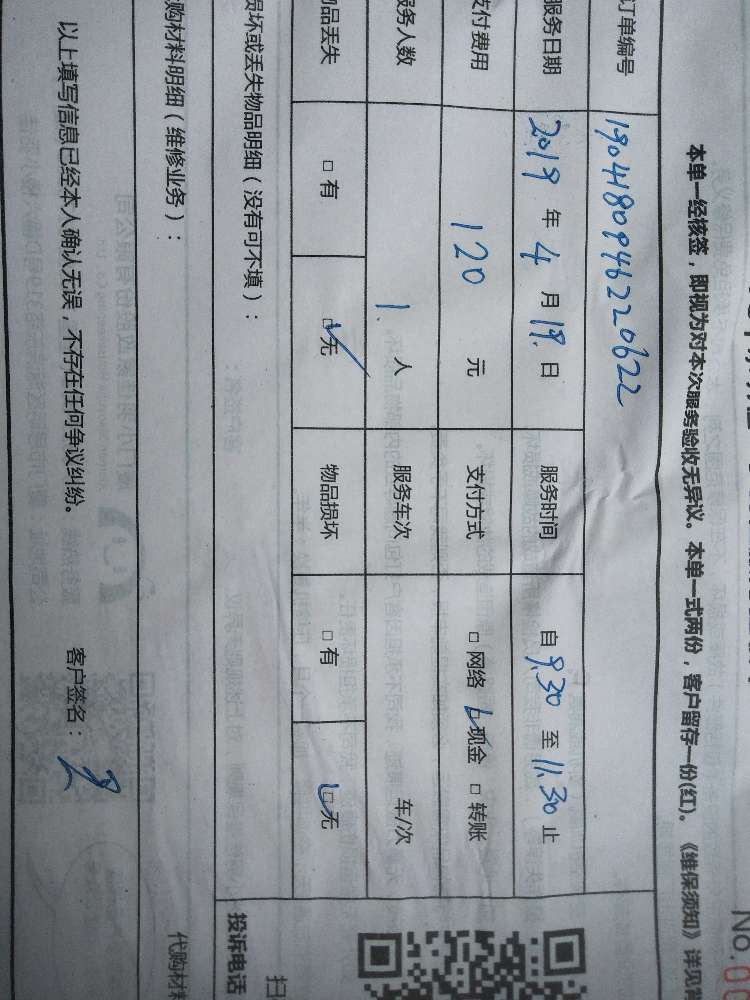 No.00
本单一经核签，即视为对本次服务验收无异议。本单一式两份，客户留存一份(红)。《维保须知》详见背
订单编号 1904180946220622
服务日期 2019 年 4 月 19. 日 服务时间 自 9.30 至 11.30 止
支付费用 120 元 支付方式 □ 网络 □ 现金 □ 转账
服务人数 1. 人 服务车次 车/次
物品丢失 □ 有 □ 无 物品损坏 □ 有 □ 无
损坏或丢失物品明细（没有可不填）：
投诉电话
购材料明细（维修业务）：
代购材料
以上填写信息已经本人确认无误，不存在任何争议纠纷。 客户签名：
扫